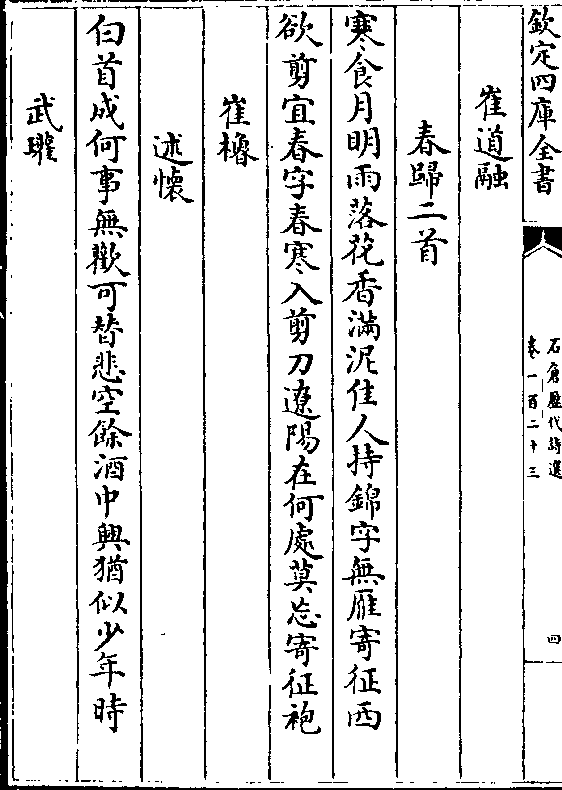 欽定四庫全書
石倉歷代詩選
卷一百二十三
四
崔道融
春歸二首
寒食月明雨落花香滿泥佳人持錦字無雁寄征西
欲剪宜春字春寒入剪刀遼陽在何處莫忘寄征袍
崔櫓
述懷
白首成何事無歡可替悲空餘酒中興猶似少年時
武瓘